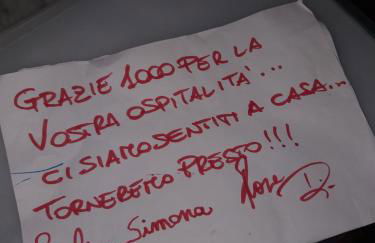 GRAZIE 1000 PER LA
VOSTRA OSPITALITA'...
CI SIAMO SENTITI A CASA...
TORNEREMO PRESTO!!!
Simona